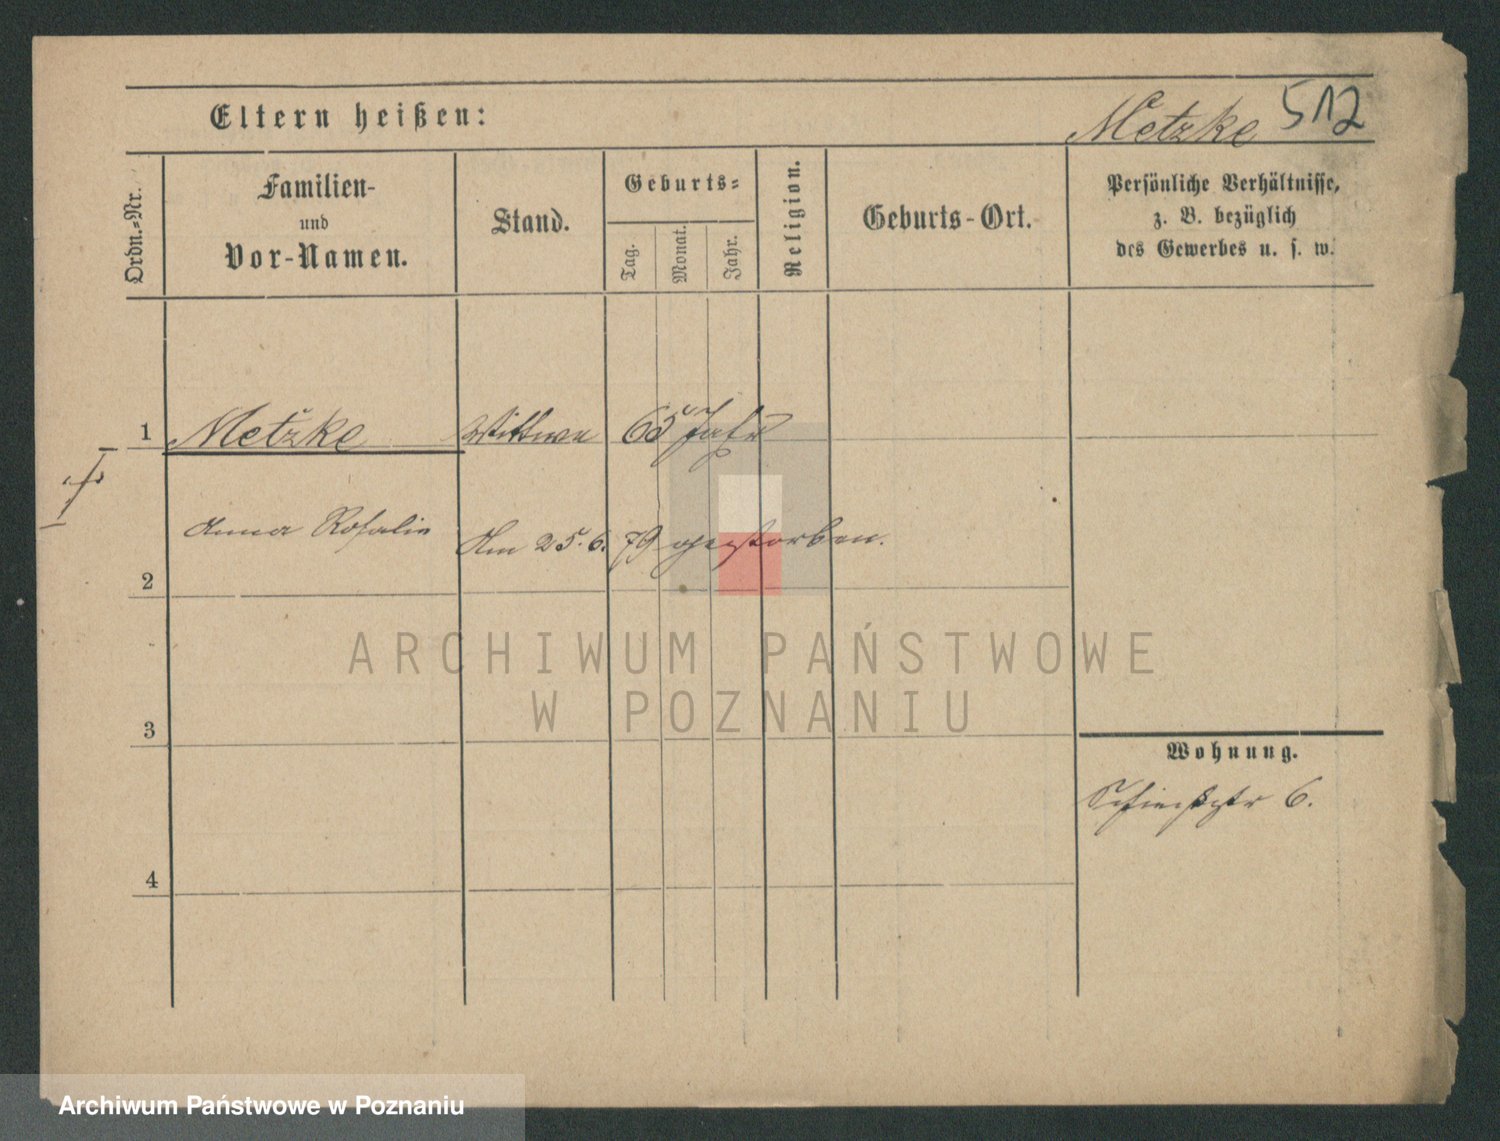 Eltern heißen:
Metzke 512
Ordn.-Nr.
Familien-
und
Vor-Namen.
Stand.
Geburts-
Tag.
Monat.
Jahr.
Religion.
Geburts-Ort.
Persönliche Verhältnisse,
z. B. bezüglich
des Gewerbes u. s. w.
1 Metzke Wittwe 65 Jahr
Anna Rosalie
Am 25.6. 79 gestorben.
2
3
4
Wohnung.
6.
ARCHIWUM PAŃSTWOWE
W POZNANIU
Archiwum Państwowe w Poznaniu